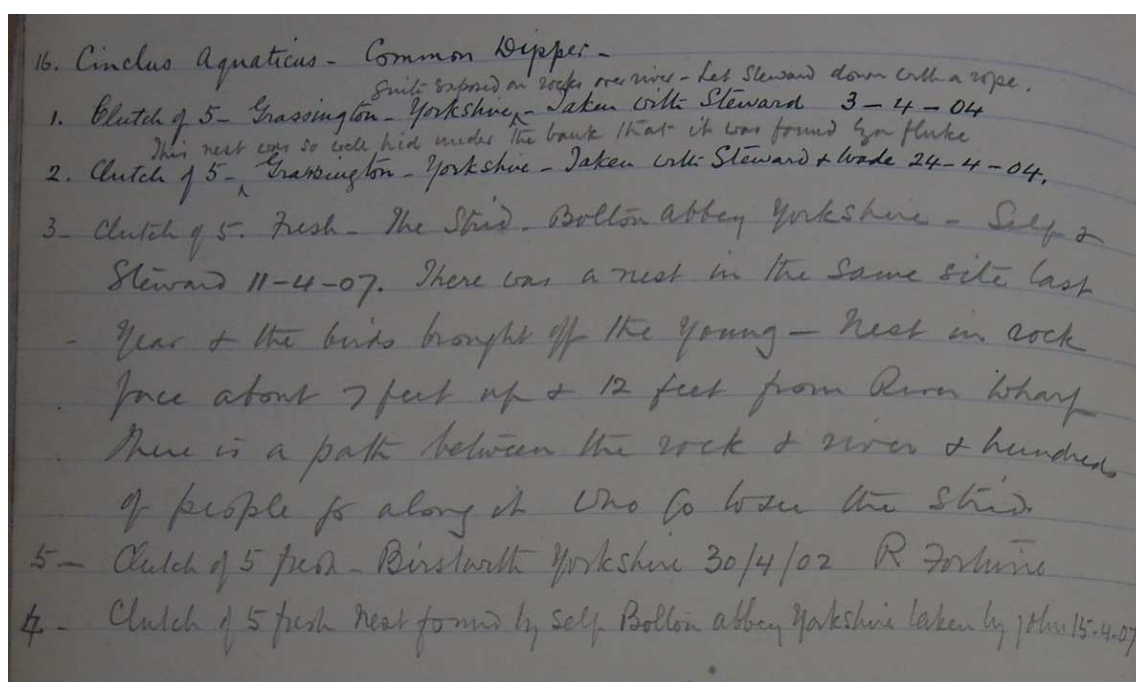 16. Cinclus Aquaticus - Common Dipper -
Quite exposed on rocks over river - Let Steward down with a rope.
1. Clutch of 5 - Grassington - Yorkshire - Taken with Steward 3-4-04
This nest was so well hid under the bank that it was found by a fluke
2. Clutch of 5 - Grassington - Yorkshire - Taken with Steward & Wade 24-4-04.
3 - Clutch of 5. Fresh - The Strid. Bolton Abbey Yorkshire - Self &
Steward 11-4-07. There was a nest in the same site last
- Year & the birds brought off the young - Nest in rock
face about 7 feet up & 12 feet from River Wharf
There is a path between the rock & river & hundreds
of people go along it who go to see the Strid.
5 - Clutch of 5 fresh - Birstwith Yorkshire 30/4/02 R Fortune
4 - Clutch of 5 fresh Nest found by self Bolton abbey Yorkshire taken by John 15-4-07